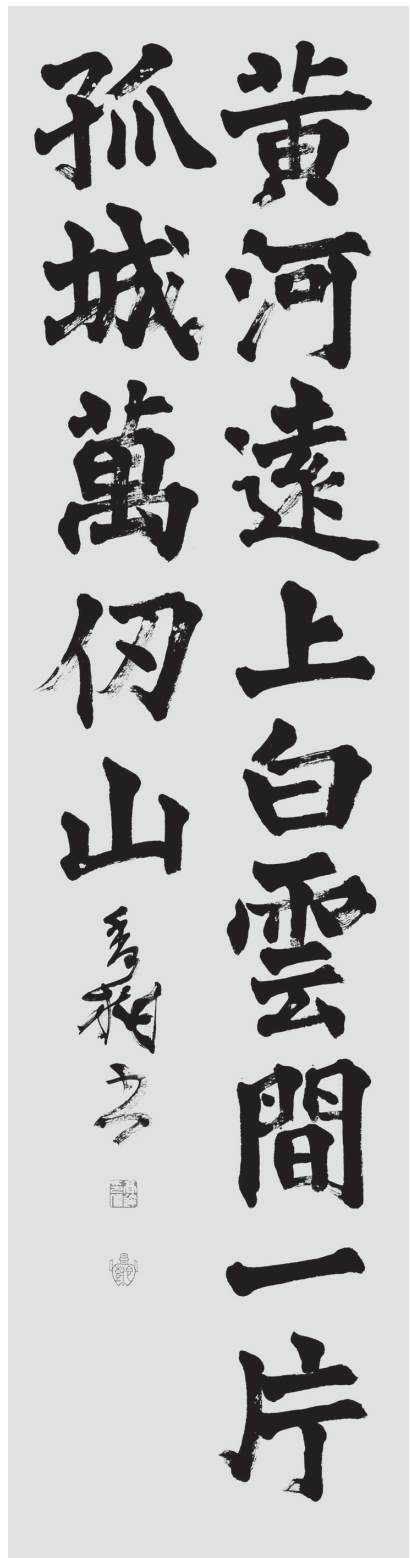 黄河遠上白雲間一片
孤城萬仞山